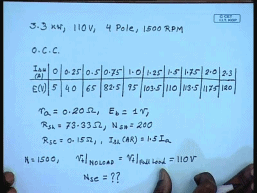 3.3 kW, 110V, 4 Pole, 1500 RPM
O.C.C.
Ish (A) 0 0.25 0.5 0.75 1.0 1.25 1.5 1.75 2.0 2.3
E(V) 5 40 65 82.5 95 103.5 110 113.5 117.5 120
ra = 0.20Ω, Eb = 1V,
Rsh = 73.33Ω, Nsh = 200
Rse = 0.15Ω, Ish (AR) = 1.5 Ia
n = 1500, Vt|NO LOAD = Vt|Full Load = 110V
Nse = ??